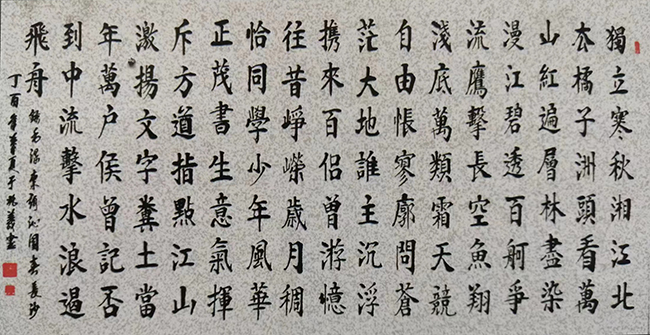 獨立寒秋湘江北
去橘子洲頭看萬
山紅遍層林盡染
漫江碧透百舸爭
流鷹擊長空魚翔
淺底萬類霜天競
自由悵寥廓問蒼
茫大地誰主沉浮
携來百侣曾游憶
往昔崢嶸歲月稠
恰同學少年風華
正茂書生意氣揮
斥方遒指點江山
激揚文字糞土當
年萬戶侯曾記否
到中流擊水浪遏
飛舟
錄毛澤東詞沁園春長沙
丁酉年